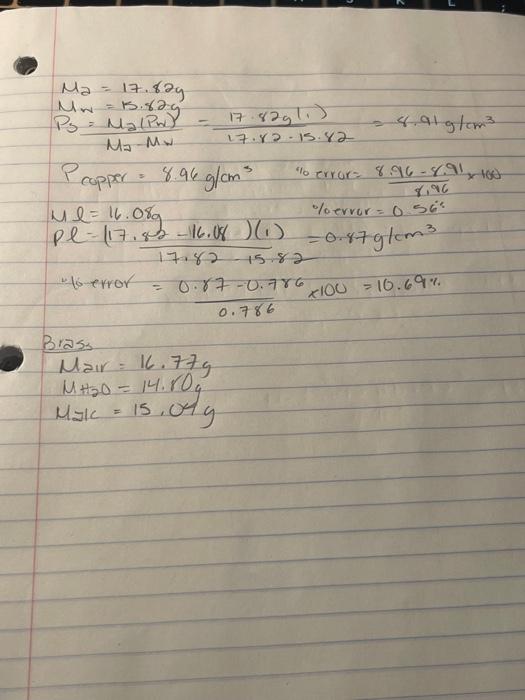 Ma = 17.82g
Mw = 15.82g
Ps = Ma(Pw) / Ma-Mw = 17.82g(1) / 17.82-15.82 = 8.91 g/cm³
Pcopper = 8.96 g/cm³ % error = 8.96-8.91 / 8.96 x100
Ml = 16.08g % error = 0.56%
Pl = (17.82-16.08)(1) / 17.82-15.82 = 0.87g/cm³
% error = 0.87-0.786 / 0.786 x100 = 10.69%
Brass
Mair = 16.77g
MH2O = 14.80g
Malc = 15.04g